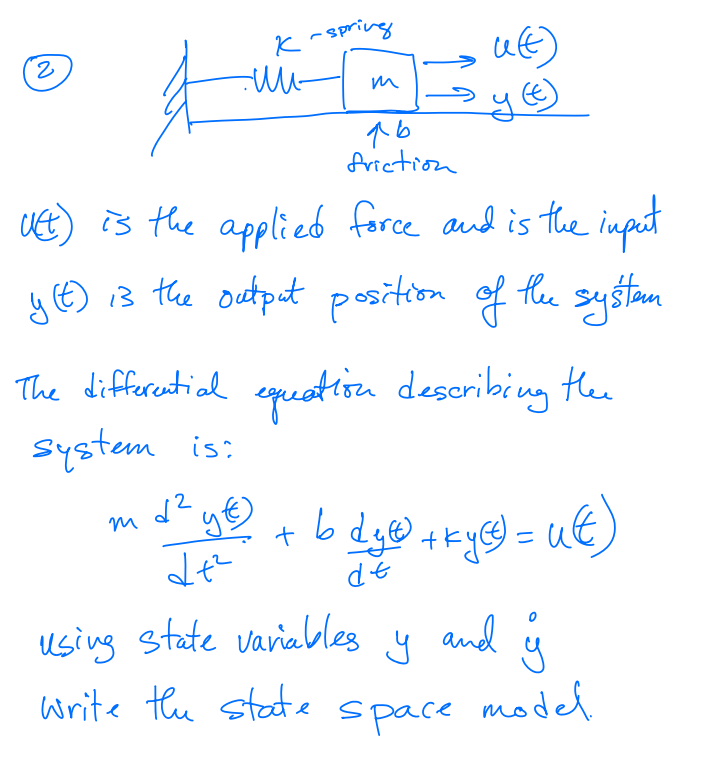 2
K - spring
m
u(t)
y(t)
b
friction
u(t) is the applied force and is the input
y(t) is the output position of the system
The differential equation describing the
system is:
m d²y(t)/dt² + b dy(t)/dt + ky(t) = u(t)
using state variables y and ẏ
write the state space model.